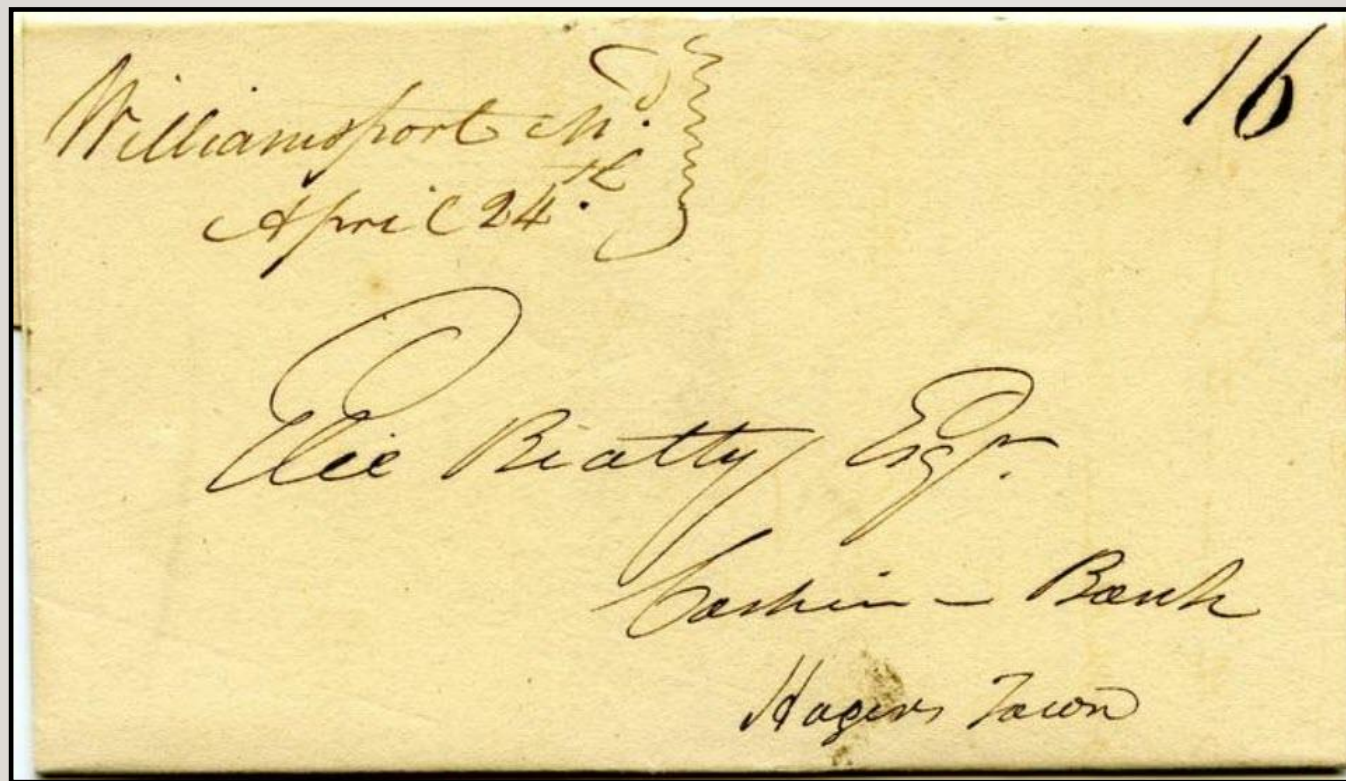 Williamsport Md.
April 24th
16
Elie Beatty Esqr.
Cashier – Bank
Hagers Town